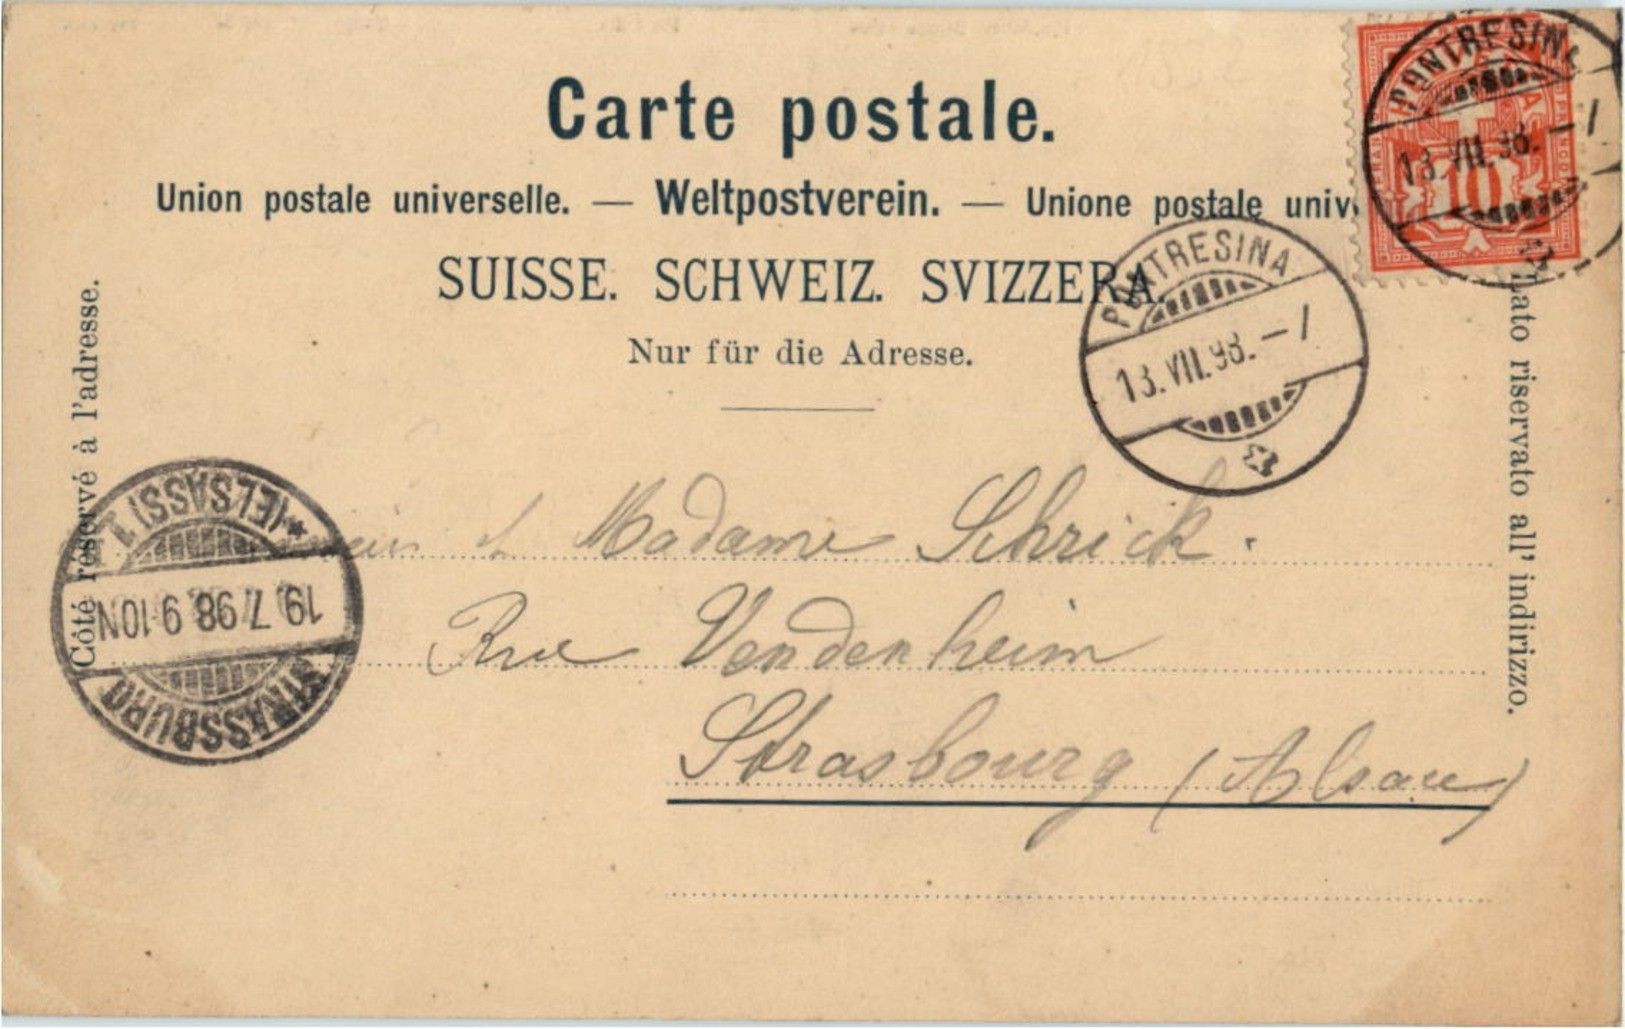 Carte postale.
Union postale universelle. — Weltpostverein. — Unione postale univ
SUISSE. SCHWEIZ. SVIZZERA.
Nur für die Adresse.
Côté réservé à l'adresse.
Lato riservato all' indirizzo.
PONTRESINA
13.VII.98.—1
10
PONTRESINA
13.VII.98.—1
STRASSBURG
19.7.98 9-10N
(ELSASS) 1
Madame Schrick.
Rue Vendenheim
Strasbourg (Alsace)